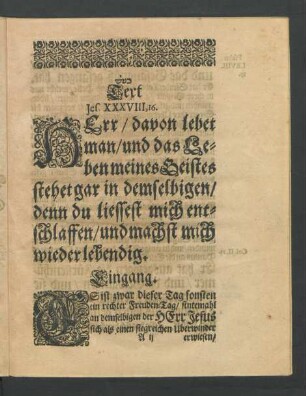 Text
Jes. XXXVIII, 16.
HErr / davon lebet
man / und das Le-
ben meines Geistes
stehet gar in demselbigen /
denn du liessest mich ent-
schlaffen / und machst mich
wieder lebendig.
Eingang.
ES ist zwar dieser Tag sonsten
ein rechter Freuden-Tag / sintemahl
an demselbigen der HErr Jesus
sich als einen siegreichen Uberwinder
A ij erwiesen /